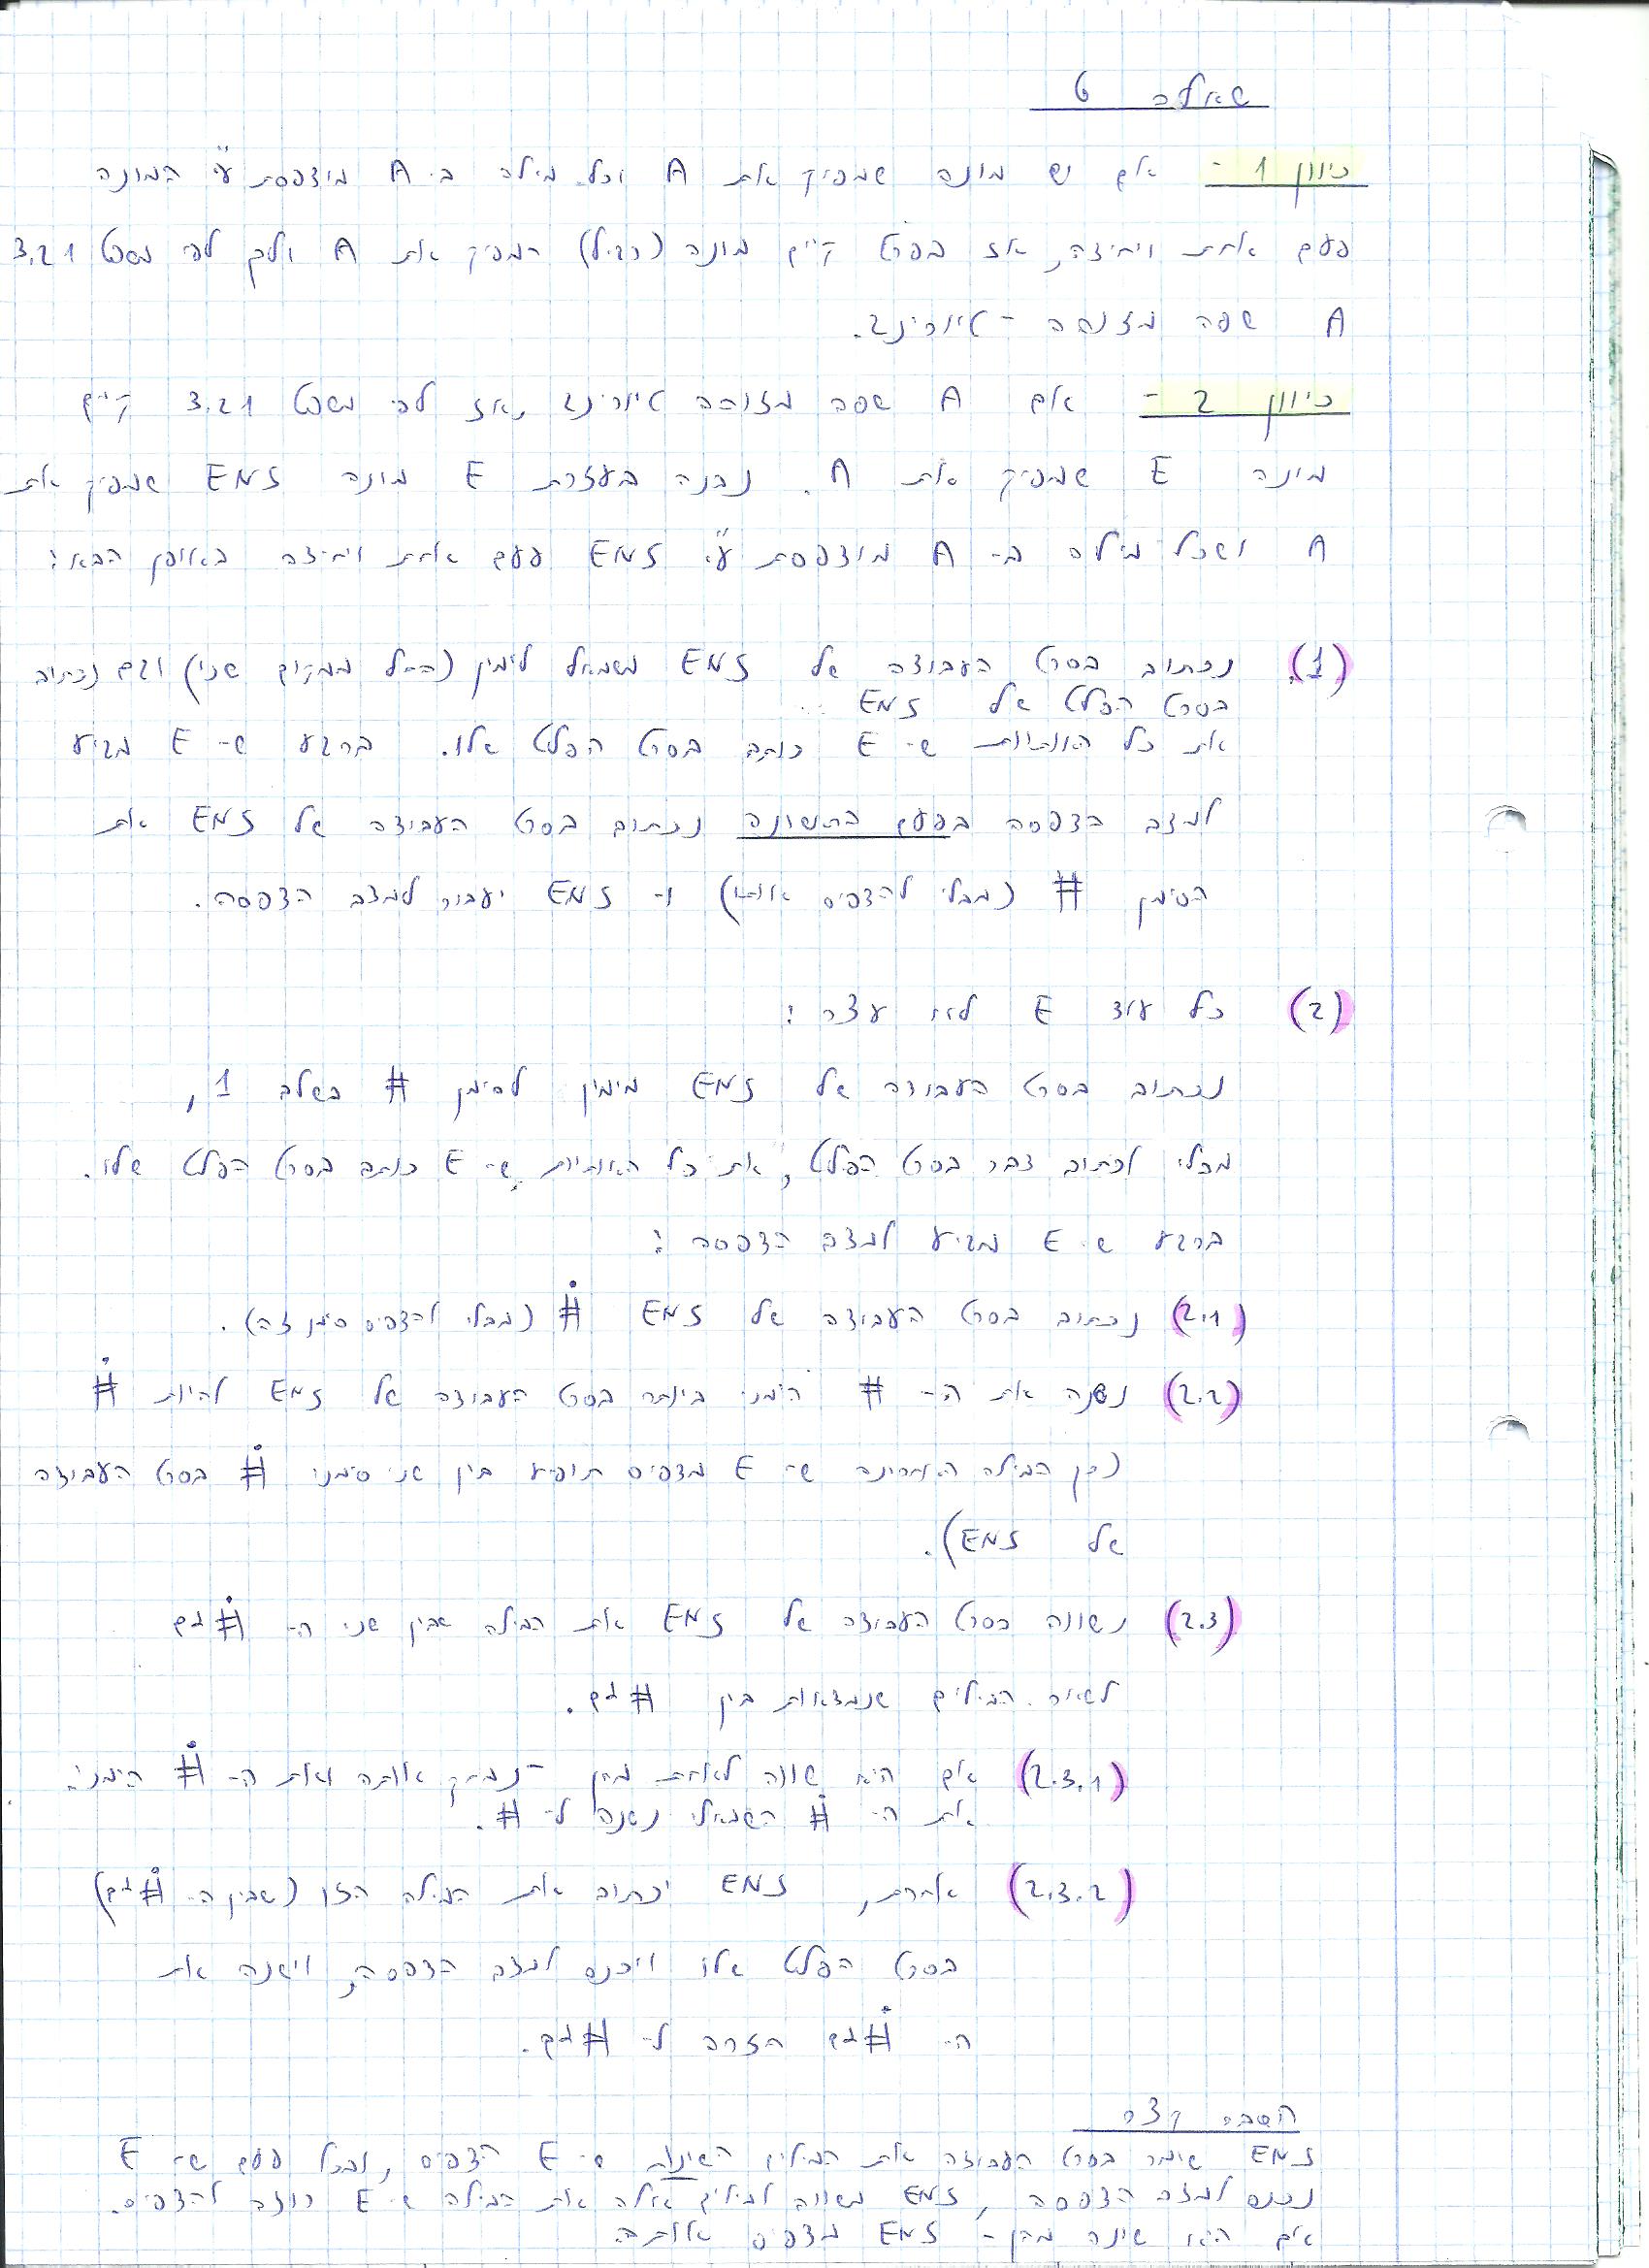 שאלה 6
כיוון 1 - אם יש מונה שמפיק את A וכל מילה ב- A מודפסת ע"י המונה
פעם אחת ויחידה, אז בפרט קיים מונה (רגיל) המפיק את A ולכן לפי משפט 3.21
A שפה מזוהה - טיורינג.
כיוון 2 - אם A שפה מזוהה טיורינג, אז לפי משפט 3.21 קיים
מונה E שמפיק את A. נבנה בעזרת E מונה ENS שמפיק את
A ושכל מילה ב- A מודפסת ע"י ENS פעם אחת ויחידה באופן הבא:
(1) נכתוב בסרט העבודה של ENS משמאל לימין (החל ממקום שני) וגם נכתוב
בסרט הפלט של ENS
את כל האותיות ש- E כותב בסרט הפלט שלו. ברגע ש- E מגיע
למצב הדפסה בפעם הראשונה נכתוב בסרט העבודה של ENS את
הסימן # (מבלי להדפיס אותו) ו- ENS יעבור למצב הדפסה.
(2) כל עוד E לא עצר:
נכתוב בסרט העבודה של ENS מימין לסימן # בשלב 1,
מבלי לכתוב דבר בסרט הפלט, את כל האותיות ש- E כותב בסרט הפלט שלו.
ברגע ש- E מגיע למצב הדפסה:
(2.1) נכתוב בסרט העבודה של ENS #̇ (מבלי להדפיס סימן זה).
(2.2) נשנה את ה- # הימני ביותר בסרט העבודה של ENS להיות #̇
(כך המילה האחרונה ש- E מדפיס תופיע בין שני סימני #̇ בסרט העבודה
של ENS).
(2.3) נשווה בסרט העבודה של ENS את המילה שבין שני ה- #̇ים
לשאר המילים שנמצאות בין #ים.
(2.3.1) אם היא שווה לאחת מהן - נמחק אותה ואת ה- #̇ הימני.
את ה- #̇ השמאלי נשנה ל- #.
(2.3.2) אחרת, ENS יכתוב את המילה הזו (שבין ה- #̇ים)
בסרט הפלט שלו ויכנס למצב הדפסה, וישנה את
ה- #̇ים חזרה ל- #ים.
הסבר קצר
ENS שומר בסרט העבודה את המילים השונות ש- E הדפיס, ובכל פעם ש- E
נכנס למצב הדפסה, ENS משווה למילים אלה את המילה ש- E רוצה להדפיס.
אם היא שונה מהן - ENS מדפיס אותה